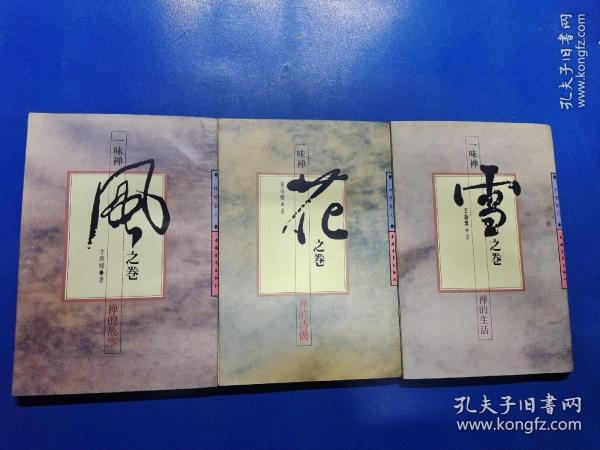 孔夫子旧书网
www.kongfz.com
一味禅
風
之卷
李瑛棣●著
禅的故事
一味禅
花
之卷
禅的诗偈
一味禅
雪
之卷
王静蓉●著
禅的生活
孔夫子旧书网
www.kongfz.com